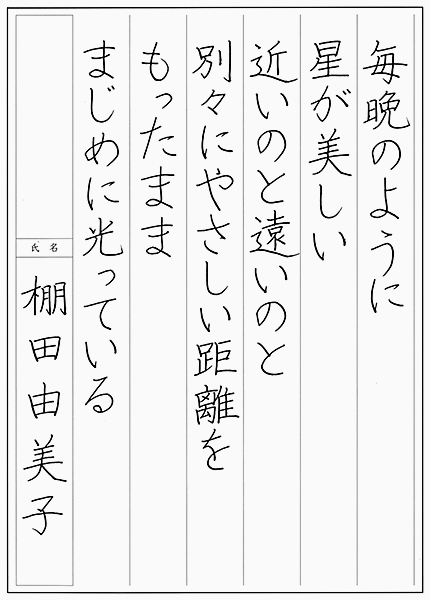 毎晩のように
星が美しい
近いのと遠いのと
別々にやさしい距離を
もったまま
まじめに光っている
氏名
棚田由美子